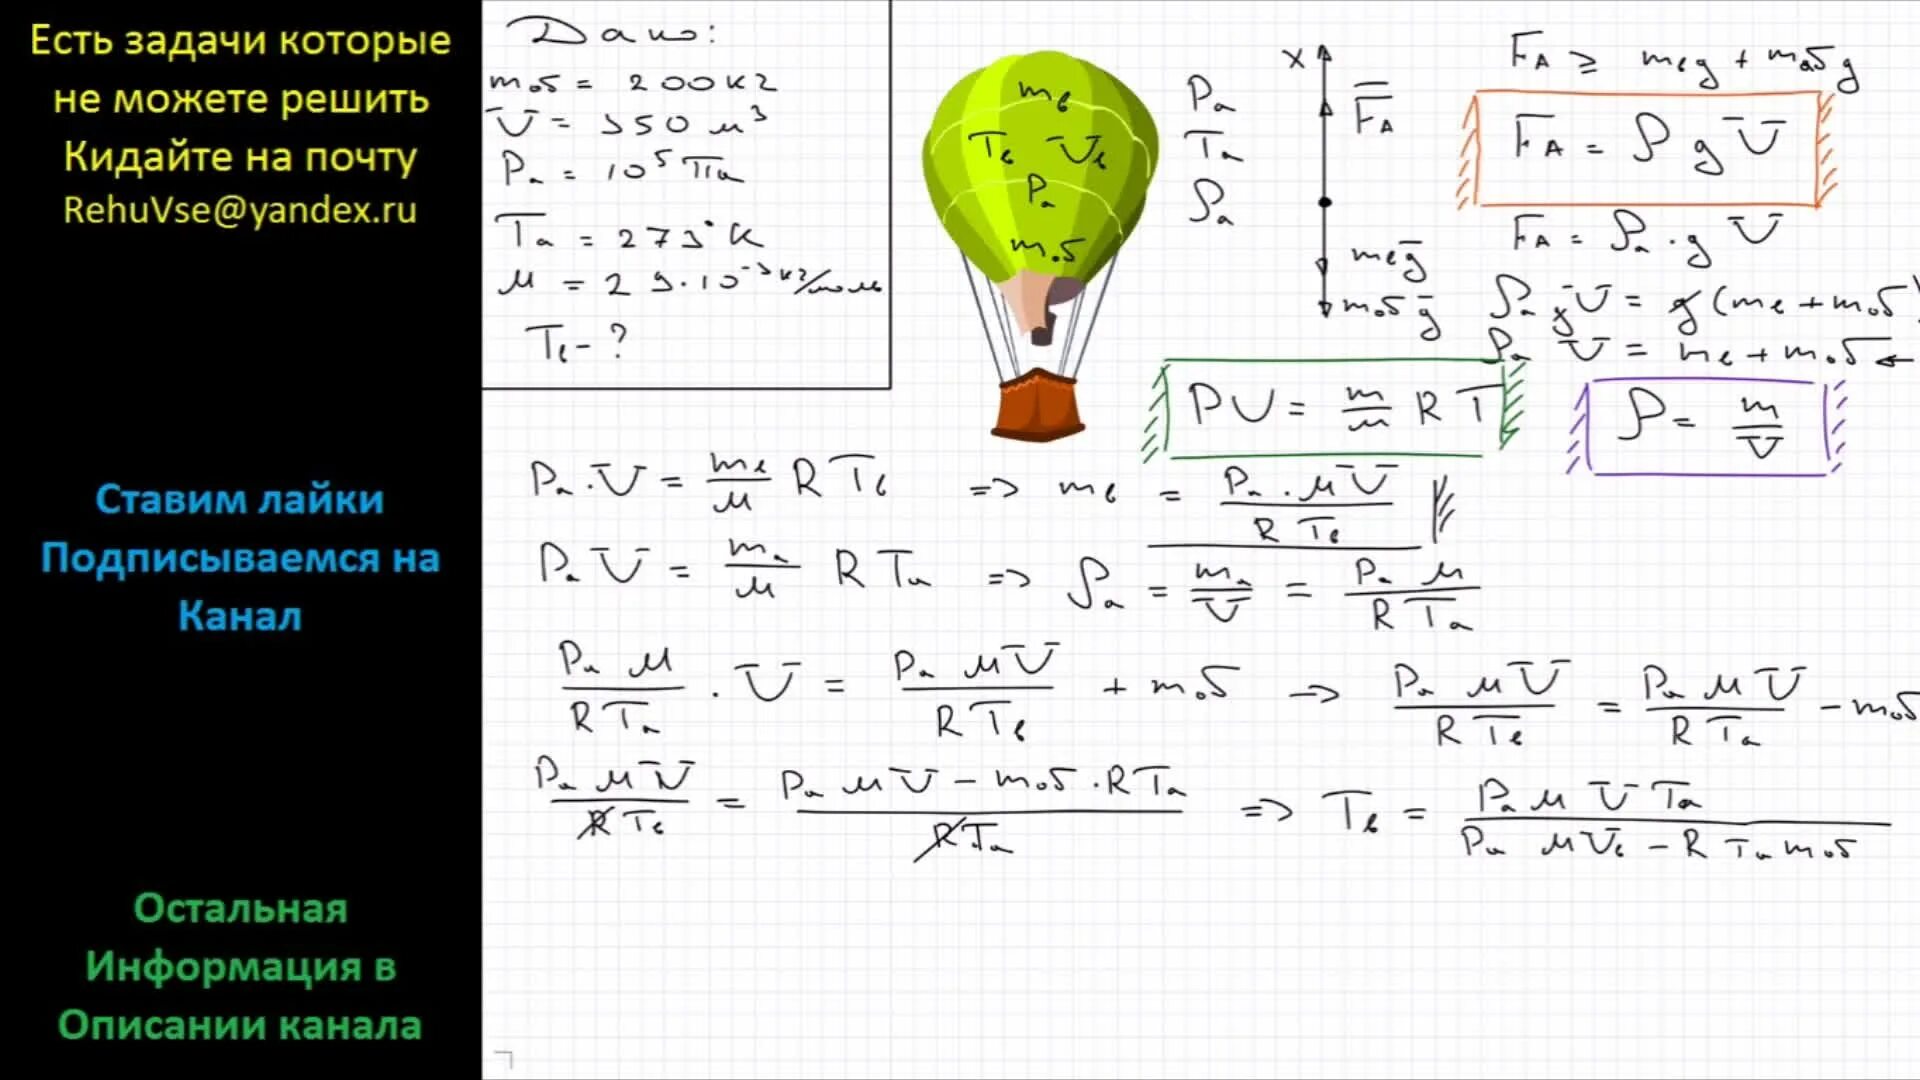 Есть задачи которые
не можете решить
Кидайте на почту
RehuVse@yandex.ru
Ставим лайки
Подписываемся на
Канал
Остальная
Информация в
Описании канала
Дано:
mоб = 200 кг
V = 350 м³
Pa = 10⁵ Па
Ta = 273° К
М = 29·10⁻³ кг/моль
Tв - ?
mв
Tв Vв
Pa
mоб
Pa
Ta
ρa
X
F̅A
mв g̅
mоб g̅
FA ≥ mв g + mоб g
FA = ρ g V
FA = ρa · g V
ρa g V = g (mв + mоб)
ρa V = mв + mоб ←
PV = m/м R T
ρ = m/V
Pa · V = mв/м R Tв => mв = Pa · м V / R Tв
Pa V = ma/м R Ta => ρa = ma/V = Pa м / R Ta
Pa м / R Ta · V = Pa м V / R Tв + mоб → Pa м V / R Tв = Pa м V / R Ta - mоб
Pa м V / R Tв = Pa м V - mоб · R Ta / R Ta => Tв = Pa м V Ta / Pa м Vв - R Ta mоб